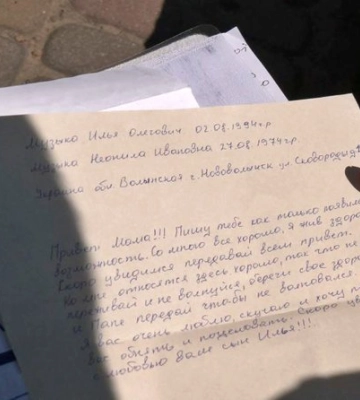 Музыко Илья Олегович 02.08.1994г.р
Музыка Неонила Ивановна 27.08.1974г.р
Украина обл Волынская г. Нововолынск ул. Сковороды
Привет Мама!!! Пишу тебе как только появилась
возможность. Со мной все хорошо, я жив здоров
скоро увидимся передавай всем привет.
Ко мне относятся здесь хорошо, так что не
переживай и не волнуйся, береги свое здоровье
и Папе передай чтобы не волновался
я вас очень люблю, скучаю и хочу
вас обнять и поцеловать. Скоро
с любовью ваш сын Илья!!!